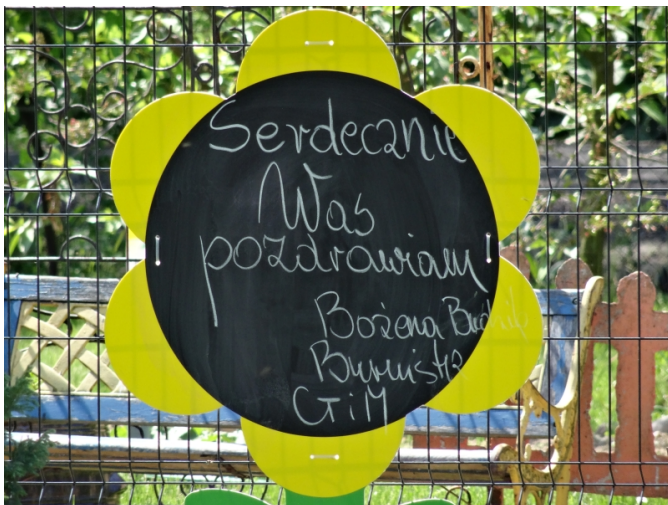 Serdecznie
Was
pozdrawiam
Bożena
Burmistrz
GiM